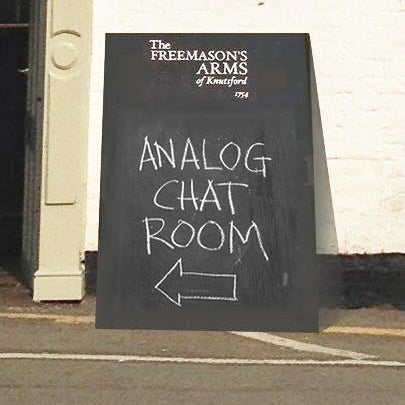 The
FREEMASON'S
ARMS
of Knutsford
1754
ANALOG
CHAT
ROOM